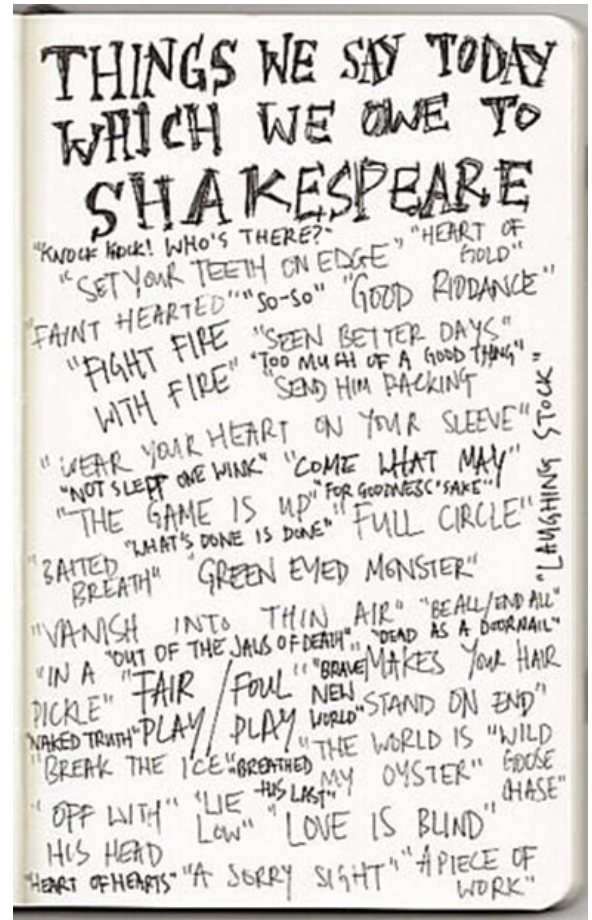 THINGS WE SAY TODAY
WHICH WE OWE TO
SHAKESPEARE
"KNOCK KNOCK! WHO'S THERE?" "HEART OF GOLD"
"SET YOUR TEETH ON EDGE"
"FAINT HEARTED" "SO-SO" "GOOD RIDDANCE"
"FIGHT FIRE WITH FIRE" "SEEN BETTER DAYS"
"TOO MUCH OF A GOOD THING"
"SEND HIM PACKING
"WEAR YOUR HEART ON YOUR SLEEVE"
"NOT SLEPT ONE WINK" "COME WHAT MAY"
"THE GAME IS UP" "FOR GOODNESS' SAKE"
"WHAT'S DONE IS DONE" "FULL CIRCLE"
"LAUGHING STOCK"
"BAITED BREATH" "GREEN EYED MONSTER"
"VANISH INTO THIN AIR" "BE ALL/END ALL"
"OUT OF THE JAWS OF DEATH" "DEAD AS A DOORNAIL"
"IN A PICKLE" "FAIR PLAY/FOUL PLAY" "BRAVE NEW WORLD" "MAKES YOUR HAIR STAND ON END"
"NAKED TRUTH" "THE WORLD IS MY OYSTER" "WILD GOOSE CHASE"
"BREAK THE ICE" "BREATHED HIS LAST"
"OFF WITH HIS HEAD "LIE LOW" "LOVE IS BLIND"
"HEART OF HEARTS" "A SORRY SIGHT" "A PIECE OF WORK"